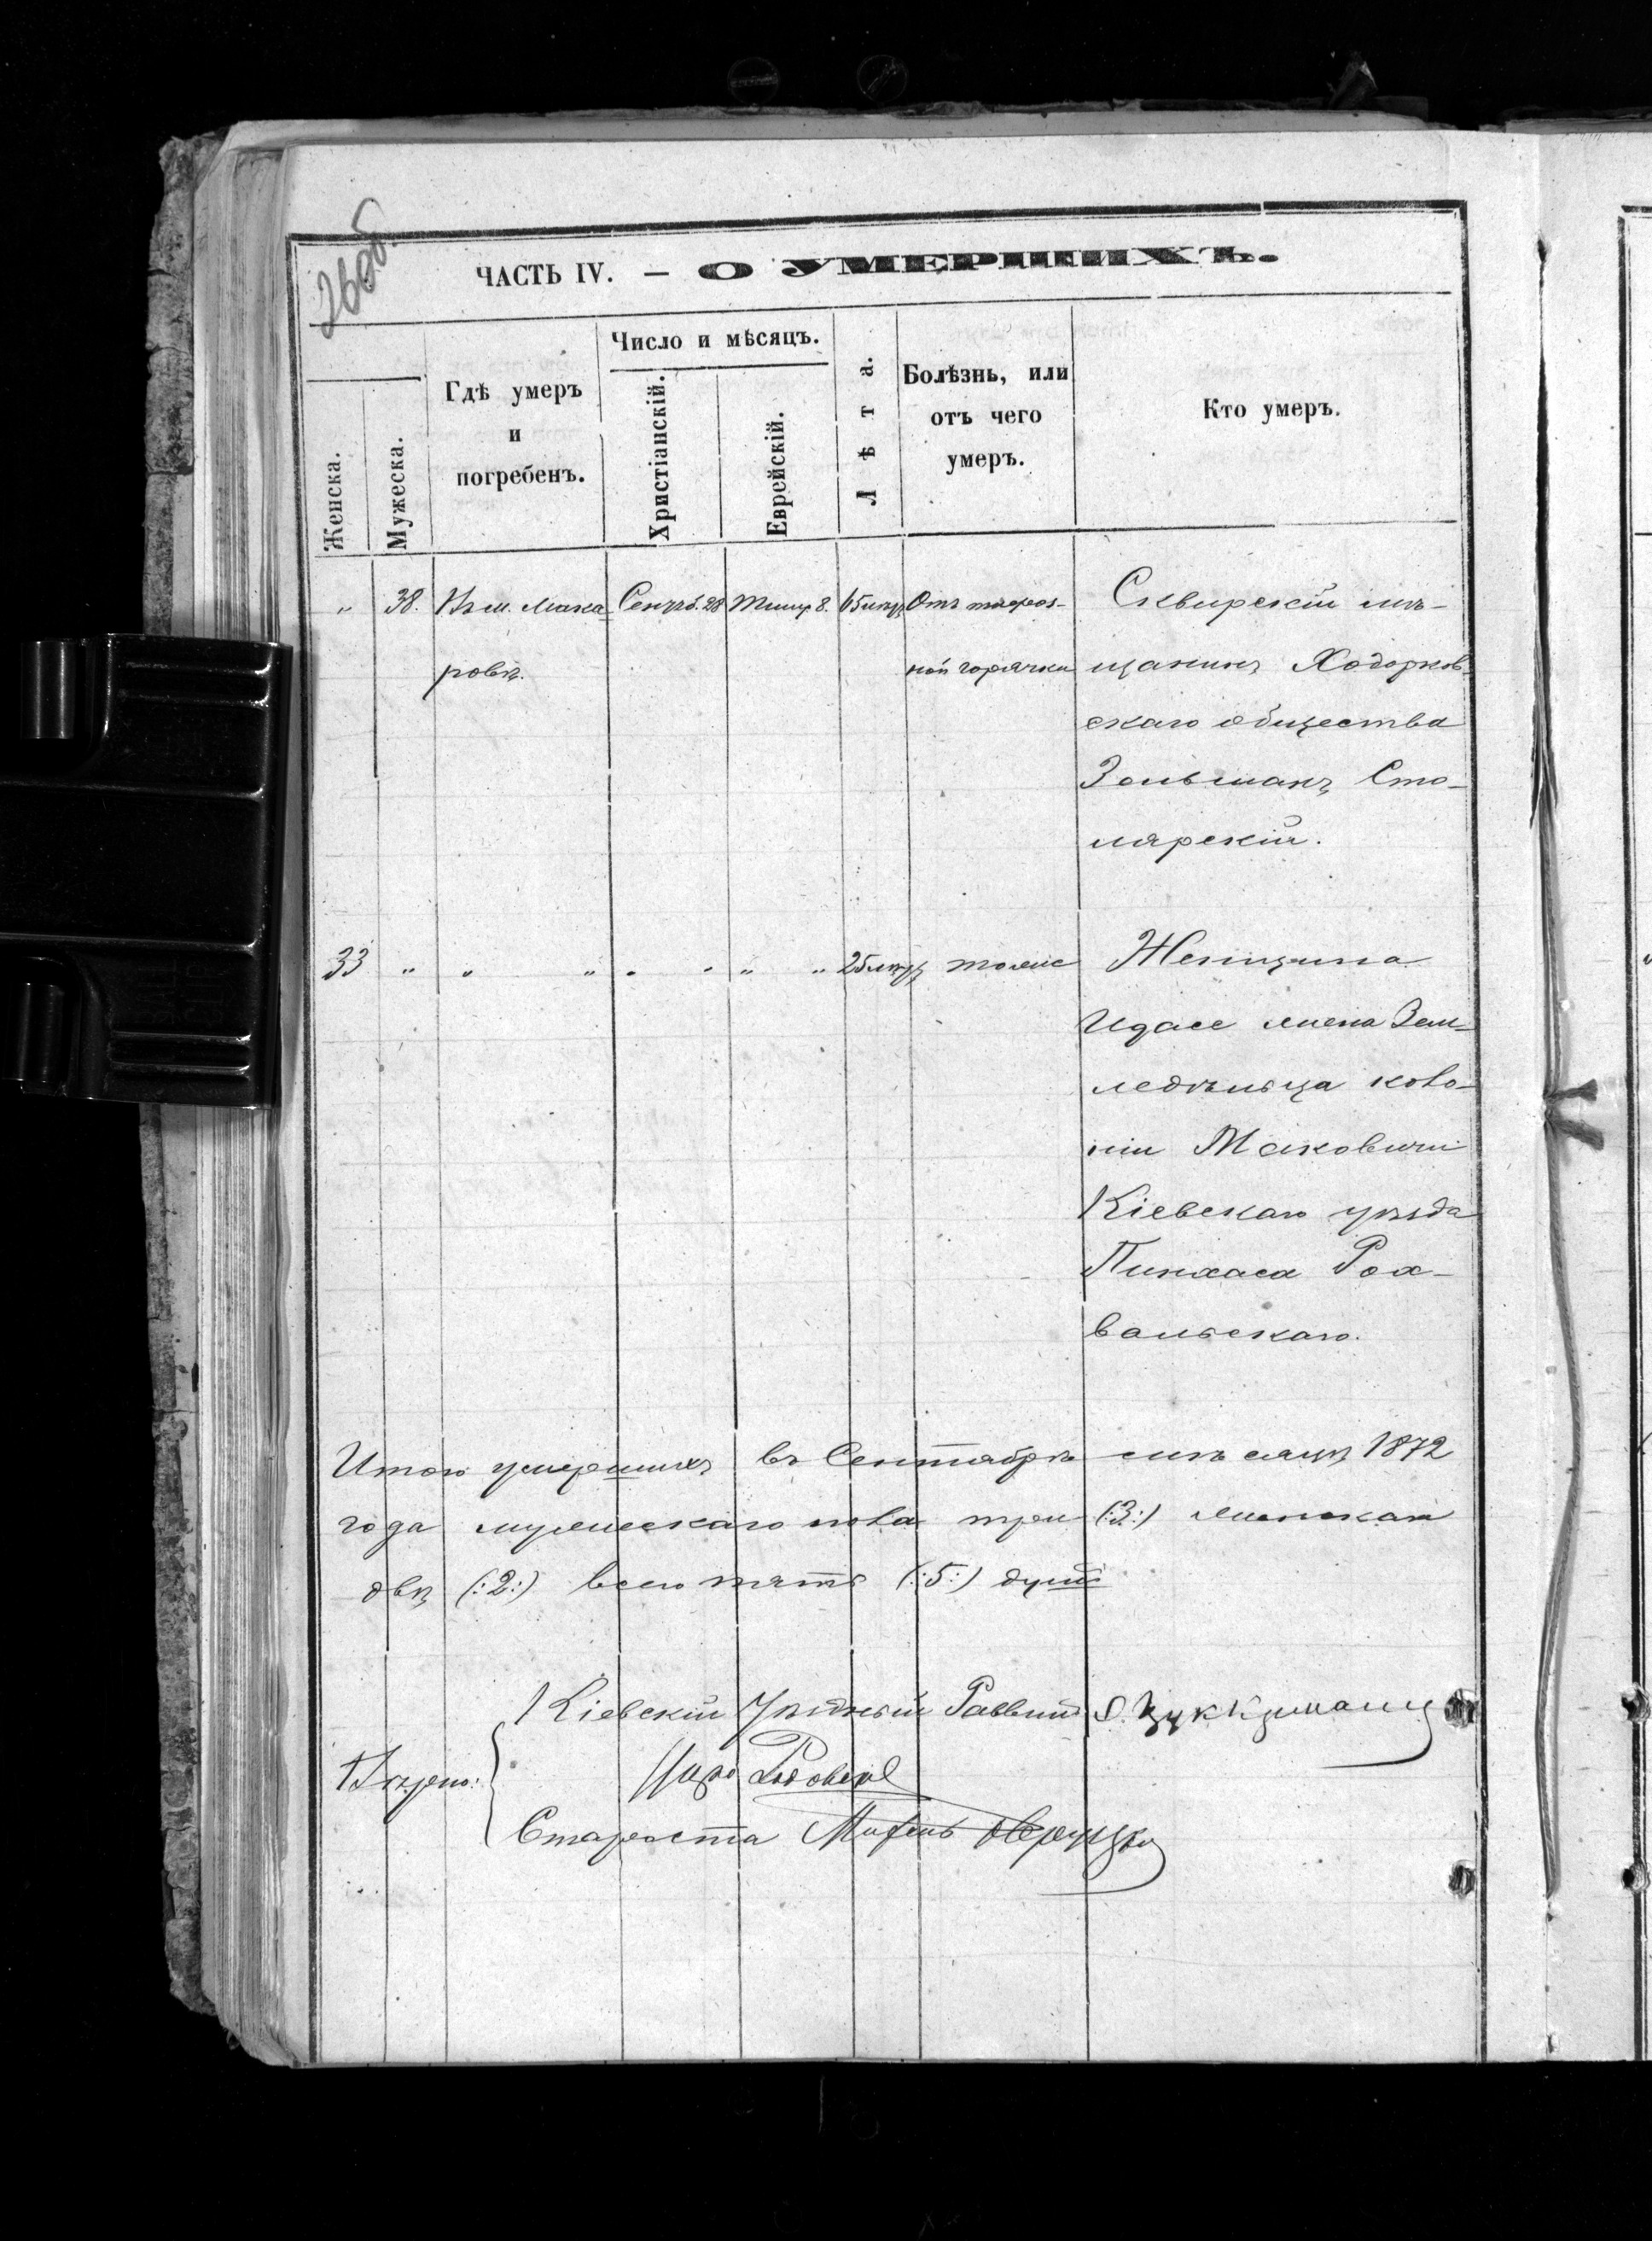 260об.
ЧАСТЬ IV. — О УМЕРШИХЪ.
Женска.
Мужеска.
Гдѣ умеръ
и
погребенъ.
Число и мѣсяцъ.
Христіанскій.
Еврейскій.
Лѣта.
Болѣзнь, или
отъ чего
умеръ.
Кто умеръ.
„ 38. Въ м. Мака Сентяб. 28 Тишр. 8. 65 лѣтъ Отъ тифоз- Сквирскій мѣ-
ровѣ. ной горячки щанинъ Ходорков-
скаго общества
Зельманъ Сто-
лярскій.
33 „ „ „ „ „ „ „ 25 лѣтъ тоже Женщина
Идасе жена Зем-
ледѣльца коло-
ніи Маковичи
Кіевскаго уѣзда
Пинхаса Рох-
вальскаго.
Итого умершихъ въ Сентябрѣ мѣсяцѣ 1872
года мужескаго пола три (:3:) женскаго
двѣ (:2:) всего пять (:5:) душъ
Кіевскій Уѣздный Раввинъ Цуккерманъ
Вѣрно:
Староста